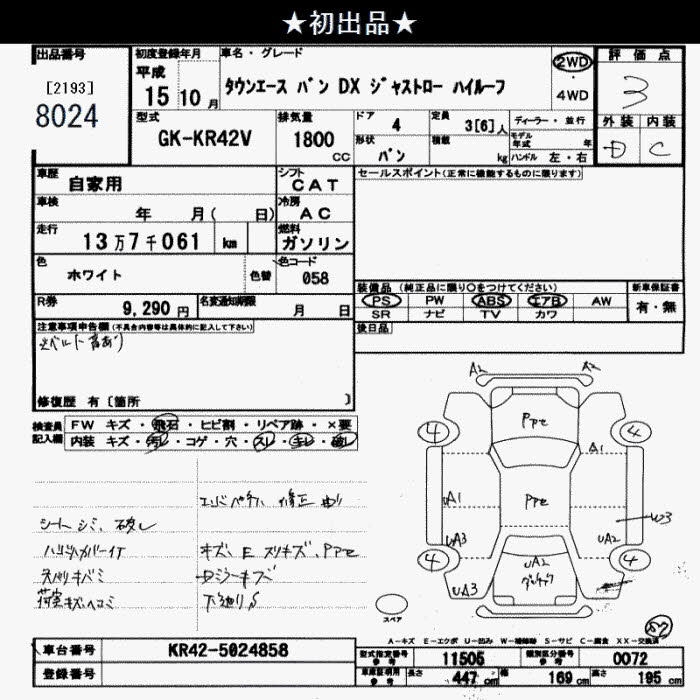 ★初出品★
出品番号
[2193]
8024
初度登録年月
平成
15 10月
車名・グレード
タウンエース バン DX ジャストロー ハイルーフ
2WD
・
4WD
評価点
3
外装 内装
D C
型式
GK-KR42V
排気量
1800
cc
ドア
4
形状
バン
定員
3[6]人
積載
kg
ディーラー・並行
モデル年式 年
ハンドル 左・右
車歴
自家用
シフト
CAT
車検
年 月( 日)
冷房
AC
走行
13万7千061 km
燃料
ガソリン
色
ホワイト
色替
色コード
058
R券
9,290円
名変通知期限
月 日
セールスポイント(正常に機能するものに限ります)
装備品 (純正品に限り○をつけてください)
PS PW ABS エアB AW
SR ナビ TV カワ
新車保証書
有・無
後日品
注意事項申告欄(不具合内容等は具体的に記入して下さい)
修復歴 有〔箇所 〕
検査員記入欄
FW キズ・飛石・ヒビ割・リペア跡・×要
内装 キズ・汚レ・コゲ・穴・スレ・キレ・破レ
シートシミ、破レ
キズ、E スリキズ、PPC
下廻りS
A2 A2
PPC
4 4
A1
A1
PPC
W3
UA3
UA2
UA2
4 4
UA3
スペア
A-キズ E-エクボ U-凹み W-補修跡 S-サビ C-腐食 XX-交換済
車台番号
KR42-5024858
登録番号
型式指定番号
参考
11505
類別区分番号
参考
0072
車庫証明用
参考
長さ
447cm
幅
169cm
高さ
195cm